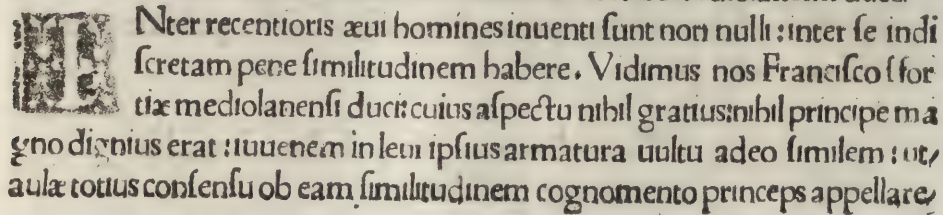 INter recentioris æui homines inuenti sunt non nulli: inter se indi
scretam pene similitudinem habere. Vidimus nos Francisco sfor
tiæ mediolanensi duci: cuius aspectu nihil gratius: nihil principe ma
gno dignius erat: iuuenem in leui ipsius armatura uultu adeo similem: ut,
aulæ totius consensu ob eam similitudinem cognomento princeps appellare,